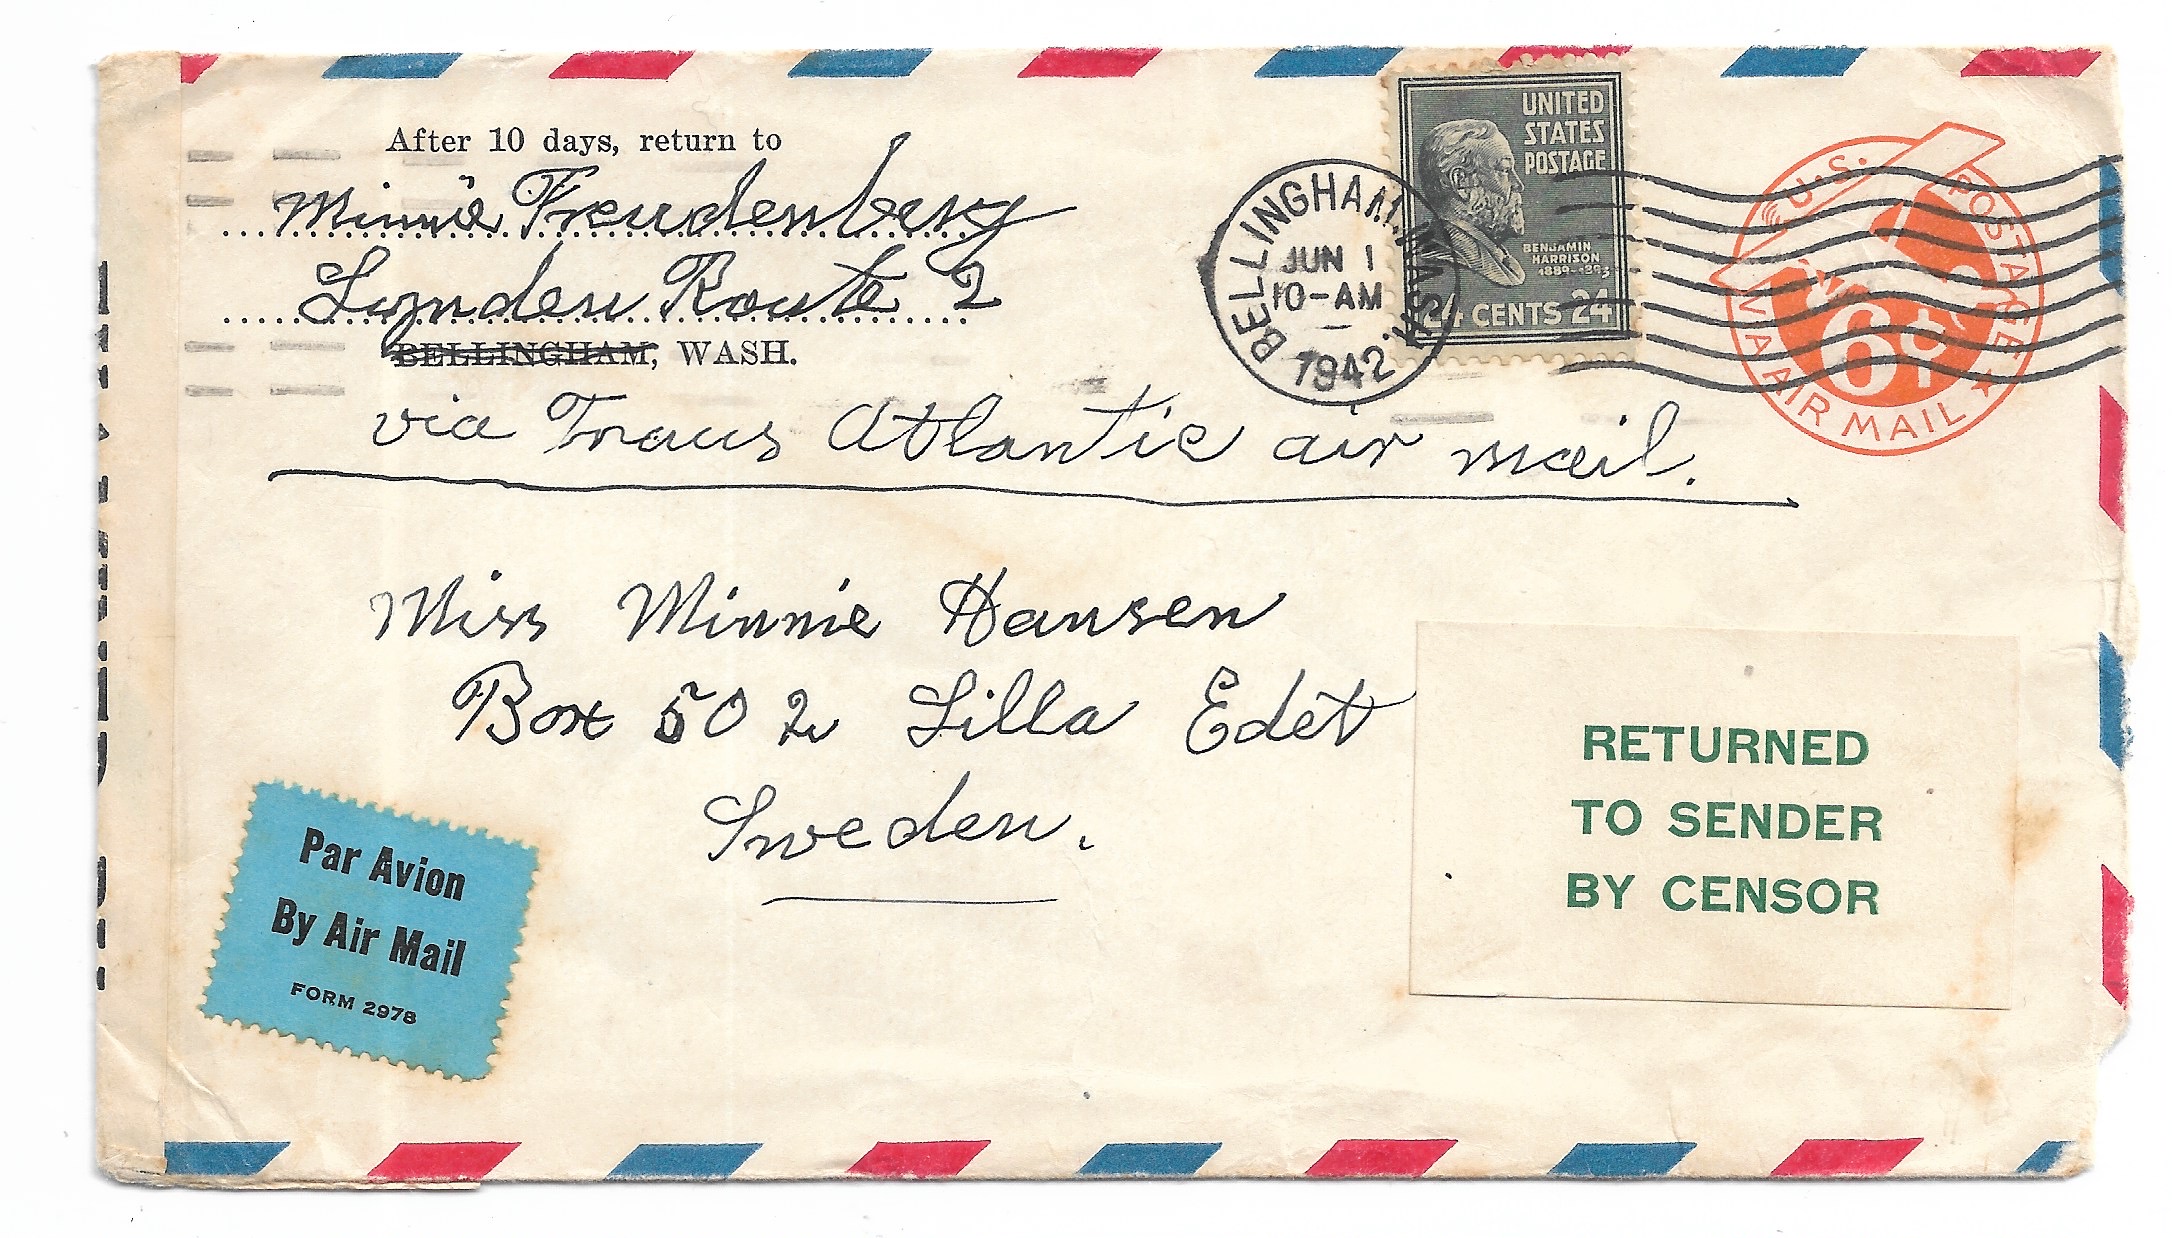 After 10 days, return to
Minnie Freudenberg
Lynden Route 2
BELLINGHAM, WASH.
via Trans Atlantic air mail.
BELLINGHAM, WASH.
JUN 1
10-AM
1942
UNITED
STATES
POSTAGE
BENJAMIN
HARRISON
1889-1893
24 CENTS 24
U.S. POSTAGE
6¢
VIA AIR MAIL
Miss Minnie Hansen
Box 502 Lilla Edet
Sweden.
RETURNED
TO SENDER
BY CENSOR
Par Avion
By Air Mail
FORM 2978